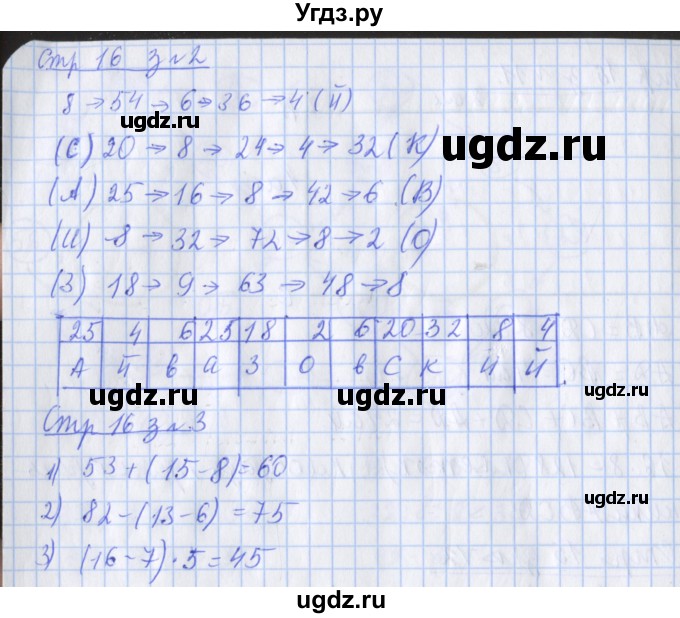 Угдз.ру
Стр 16 з №2
8 → 54 → 6 → 36 → 4 (й)
(С) 20 → 8 → 24 → 4 → 32 (К)
(А) 25 → 16 → 8 → 42 → 6 (В)
(И) 8 → 32 → 72 → 8 → 2 (О)
(З) 18 → 9 → 63 → 48 → 8
25 4 6 25 18 2 6 20 32 8 4
А й в а З О в С К И й
Стр 16 з №3
1) 53 + (15 - 8) = 60
2) 82 - (13 - 6) = 75
3) (16 - 7) · 5 = 45
ugdz.ru
ugdz.ru
ugdz.ru
ugdz.ru
ugdz.ru
ugdz.ru
ugdz.ru
ugdz.ru
ugdz.ru
ugdz.ru